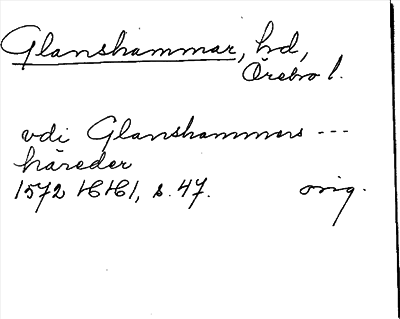 Glanshammar, hd,
Örebro l.
vdi Glanshammers ---
häreder
1572 HH1, s. 47. orig.